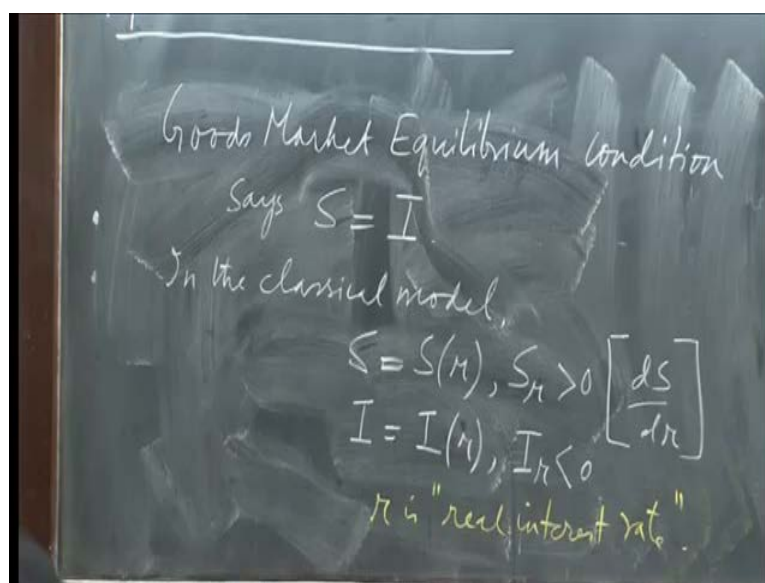 Goods Market Equilibrium condition
Says S = I
In the classical model,
S = S(r), S_r > 0 [dS/dr]
I = I(r), I_r < 0
r is "real interest rate".